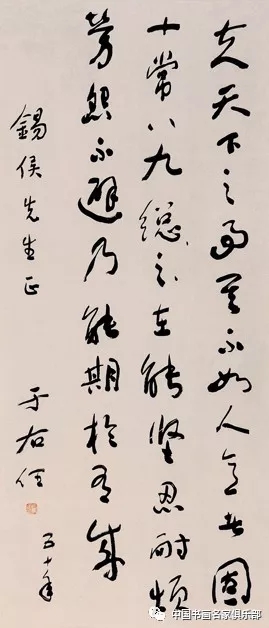 夫天下之事其不如人意者固
十常八九總之在能堅忍耐煩
勞怨不避乃能期於有成
錫侯先生正
于右任
五十年
中国书画名家俱乐部